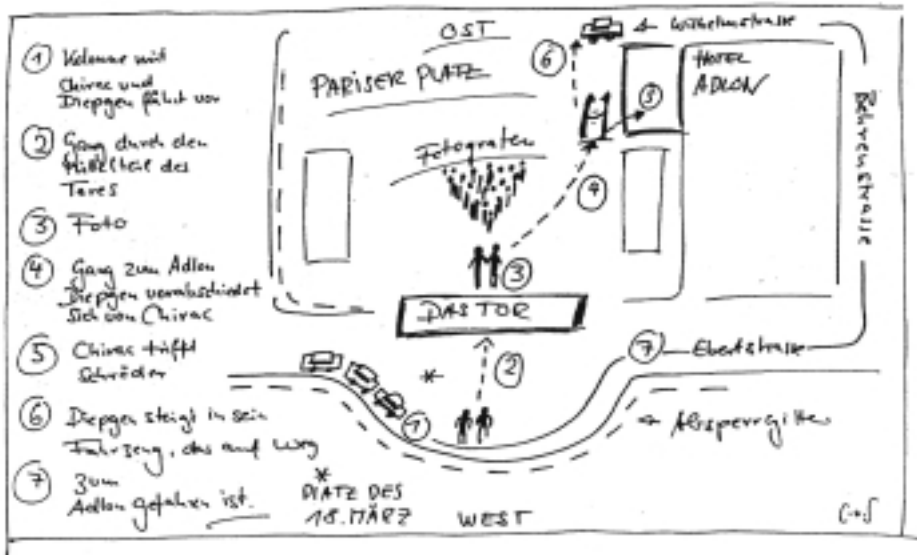 ① Kolonne mit
Chirac und
Diepgen fährt vor
② Gang durch den
Mittelteil des
Tores
③ Foto
④ Gang zum Adlon
Diepgen verabschiedet
sich von Chirac
⑤ Chirac trifft
Schröder
⑥ Diepgen steigt in sein
Fahrzeug, das auf Weg
⑦ zum
Adlon gefahren ist.
OST
PARISER PLATZ
Fotografen
⑥
← Wilhelmstrasse
HOTEL
ADLON
⑤
④
Behrenstrasse
③
DAS TOR
②
*
①
⑦ Ebertstrasse
← Absperrgitter
*
PLATZ DES
18. MÄRZ
WEST